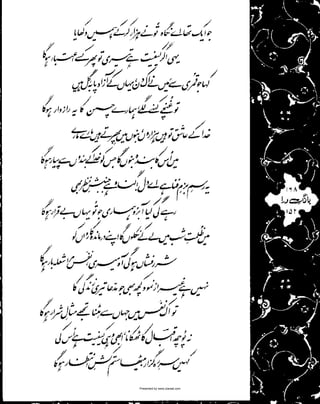 جو ایک تھا اے نگاہ تو نے ہزار کر کے ہمیں دکھایا
یہی اگر کیفیت ہے تیری تو پھر کسے اعتبار ہو گا
کہا جو قمری سے میں نے اک دن یہاں کے آزاد پا بہ گل ہیں
تو غنچے کہنے لگے ہمارے چمن کا یہ رازدار ہو گا
خدا کے عاشق تو ہیں ہزاروں بنوں میں پھرتے ہیں مارے مارے
میں اس کا بندہ بنوں گا جس کو خدا کے بندوں سے پیار ہو گا
یہ رسم بزم فنا ہے اے دل گناہ ہے جنبش نظر بھی
رہے گی کیا آبرو ہماری جو تو یہاں بے قرار ہو گا
میں ظلمت شب میں لے کے نکلوں گا اپنے درماندہ کارواں کو
شرر فشاں ہو گی آہ میری نفس مرا شعلہ بار ہو گا
نہیں ہے غیر از نمود کچھ بھی جو مدعا تیری زندگی کا
تو اک نفس میں جہاں سے مٹنا تجھے مثال شرار ہو گا
نہ پوچھ اقبال کا ٹھکانا ابھی وہی کیفیت ہے اس کی
کہیں سر رہگزار بیٹھا ستم کش انتظار ہو گا
۱۶۸
بانگ درا
۱۵۲